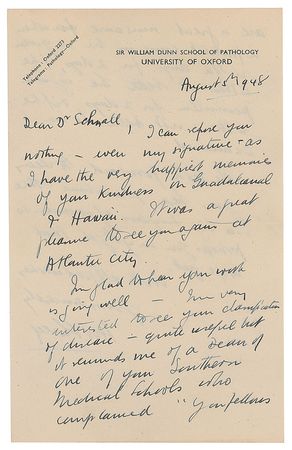 Telephone - Oxford 2271
Telegrams - Pathology—Oxford
SIR WILLIAM DUNN SCHOOL OF PATHOLOGY
UNIVERSITY OF OXFORD
August 5th 1948
Dear Dr Schnall, I can refuse you
nothing - even my signature - as
I have the very happiest memories
of your kindness on Guadalcanal
& Hawaii. It was a great
pleasure to see you again at
Atlantic City.
I'm glad to hear your work
is going well - I'm very
interested to see your classification
of disease - quite useful but
it reminds me of a Dean of
one of your Southern
Medical Schools who
complained "You fellows